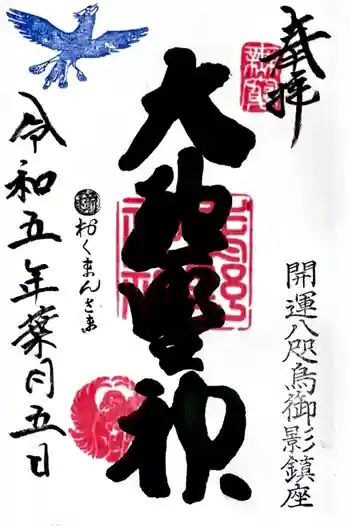 奉拝
開運八咫烏御影鎮座
大
神
おくまんさま
令和五年葉月五日